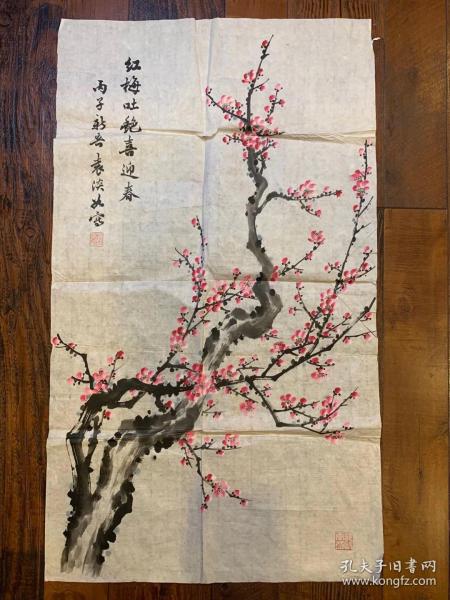 红梅吐艳喜迎春
丙子新春 袁淡如写
孔夫子旧书网
www.kongfz.com